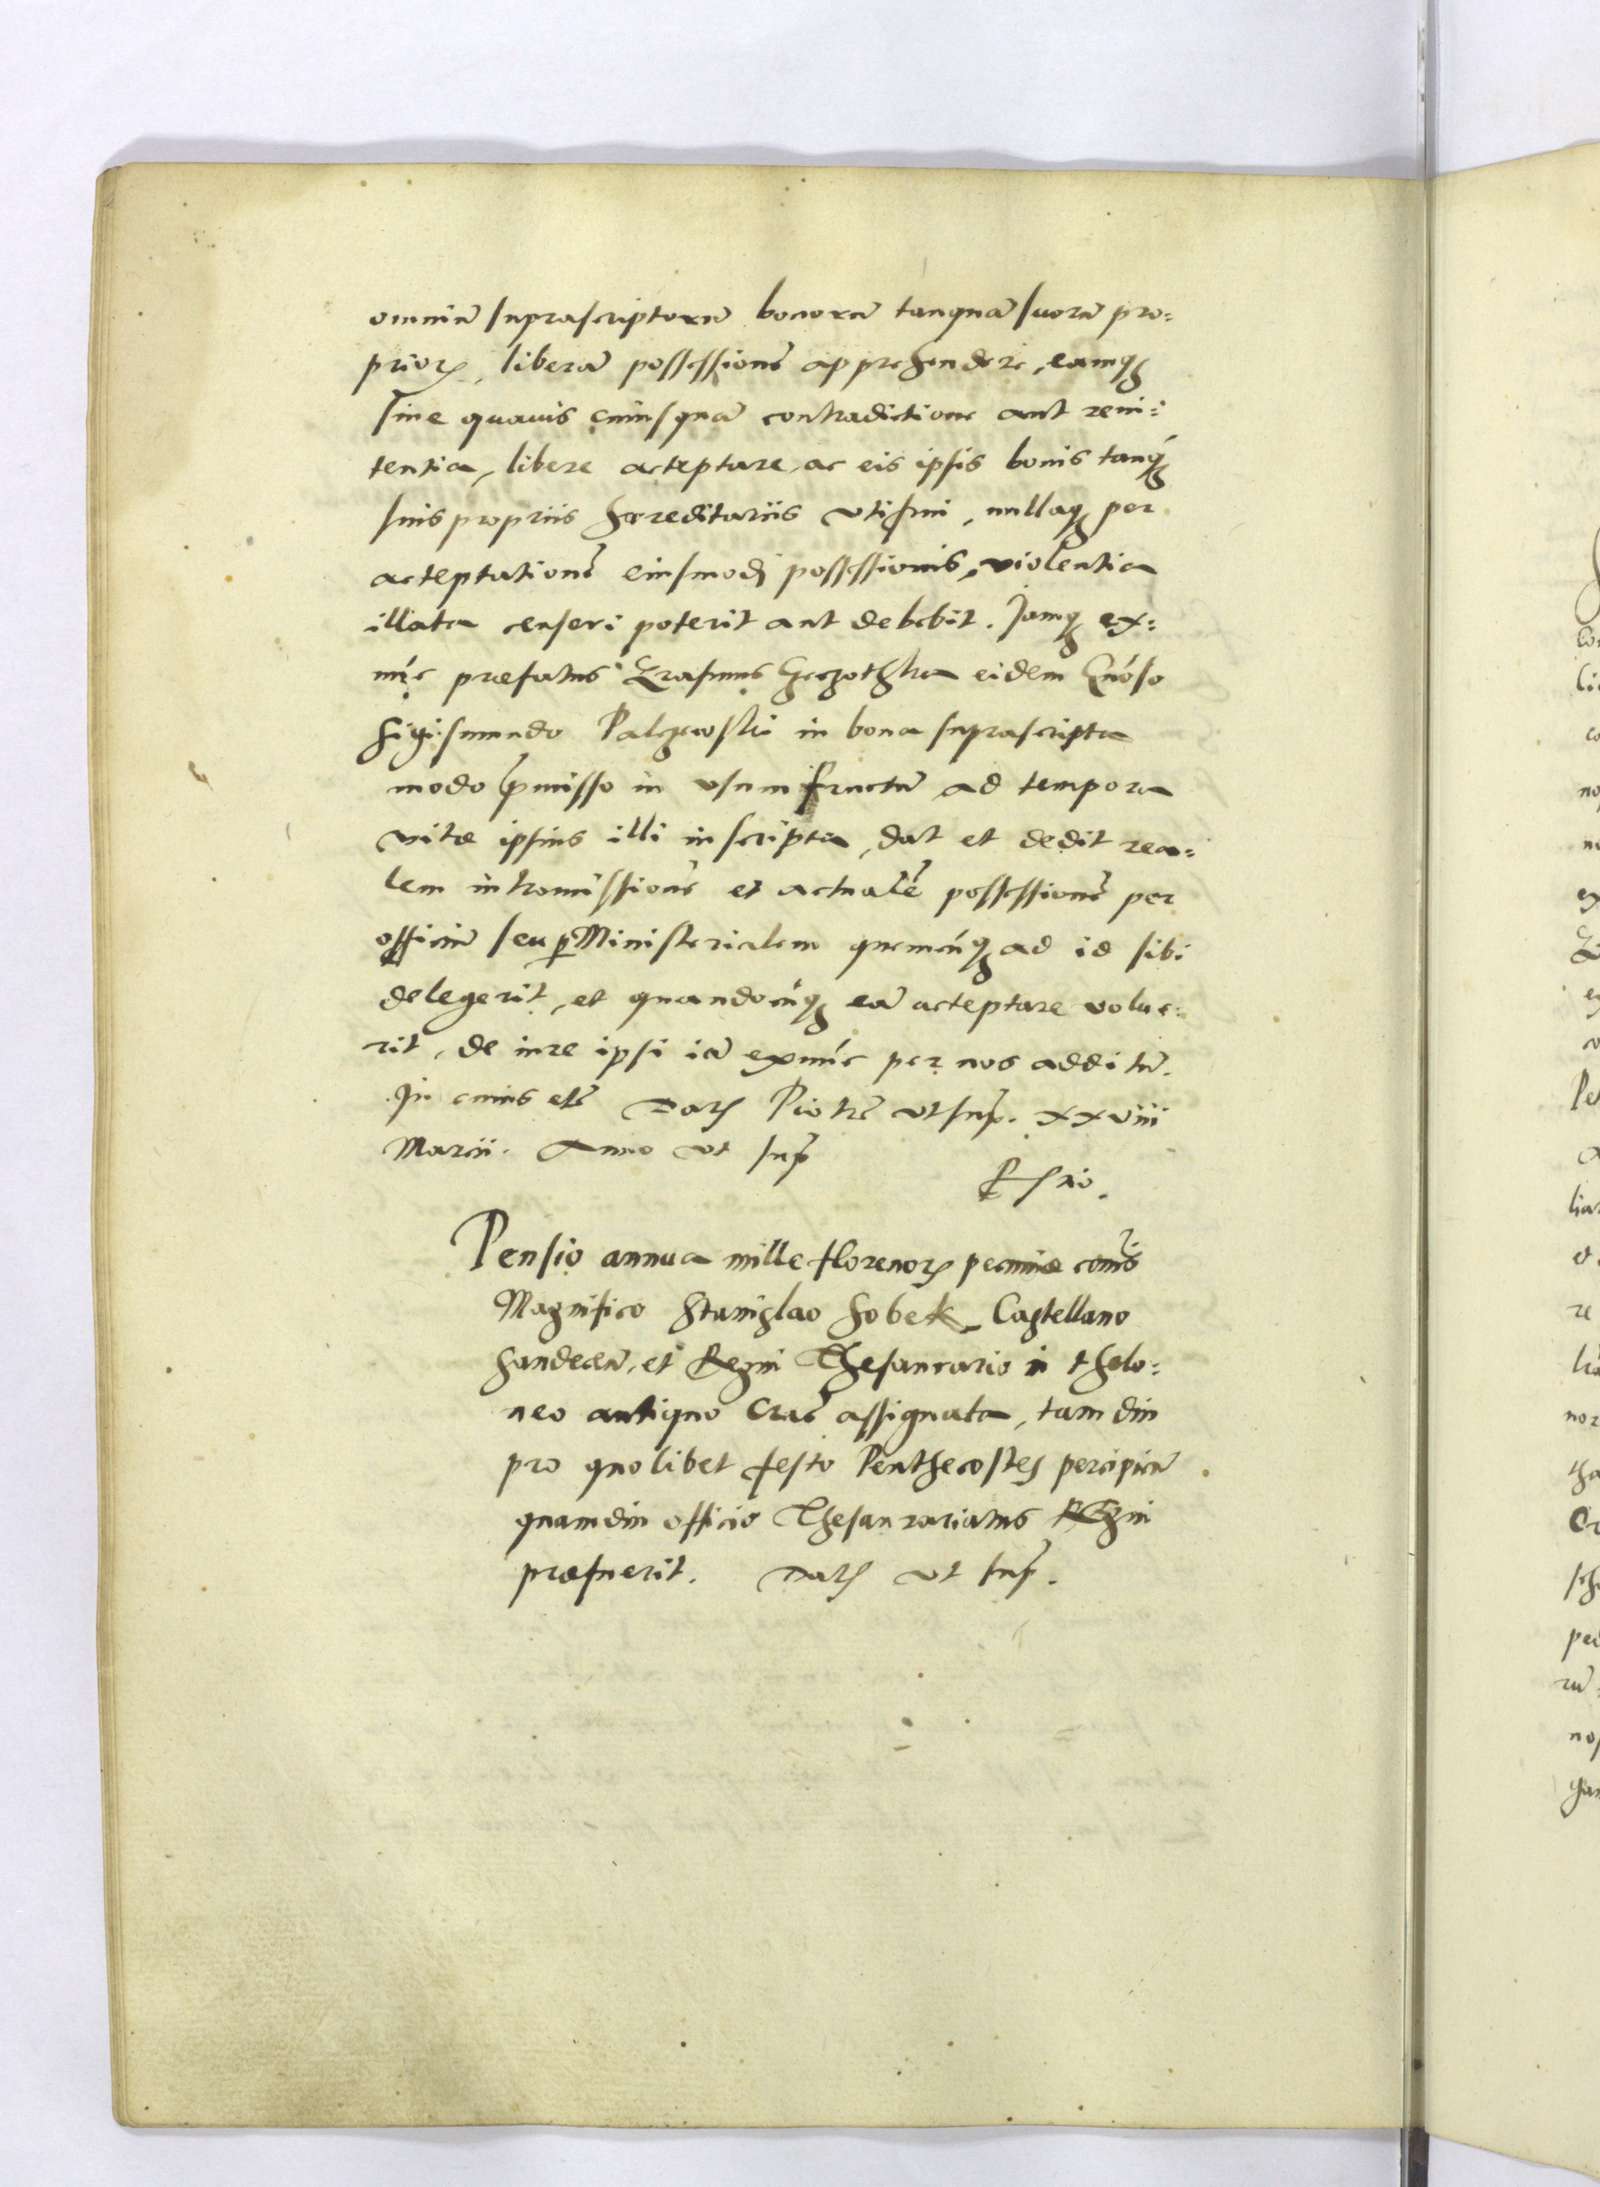 omniū suprascriptorū bonorū tanquā suorū pro=
prioꝝ, liberā possessionē apprehendere, eamqꝫ
sine quauis cuiusquā contradictione aut reni=
tentia, libere acceptare, ac eis ipsis bonis tanqꝫ
suis propriis hæreditariis vti frui, nullaqꝫ per
acceptationē eiusmodi possessionis, violentia
illata censeri poterit aut debebit. Iamqꝫ ex=
nūc præfatus Erasmus eidem Gnōso
Sigismundo Palczewski in bona suprascripta
modo p̄misso in vsum fructū ad tempora
vitæ ipsius illi inscripta, dat et dedit rea=
lem intromissionē et actualē possessionē per
officiū seu ꝑ Ministerialem quemcūqꝫ ad id sibi
delegerit, et quandocūqꝫ eā acceptare volue=
rit, de iure ipsi iā exnūc per nos additū.
In cuius etc̄ Datꝫ Piotrc̄ vt sup̄. xxviii
Marcii. Anno vt sup̄

Pensio annua mille florenoꝝ pecuniæ com̄is
Magnifico Stanislao Sobek Castellano
Sandecen̄, et Regni Thesaurario in thelo=
neo antiquo Crac̄ assignata, tam diu
pro quolibet festo Penthecostes
quamdiu officio Thesaurariatus Regni
præfuerit. Datꝫ vt sup̄.

Per